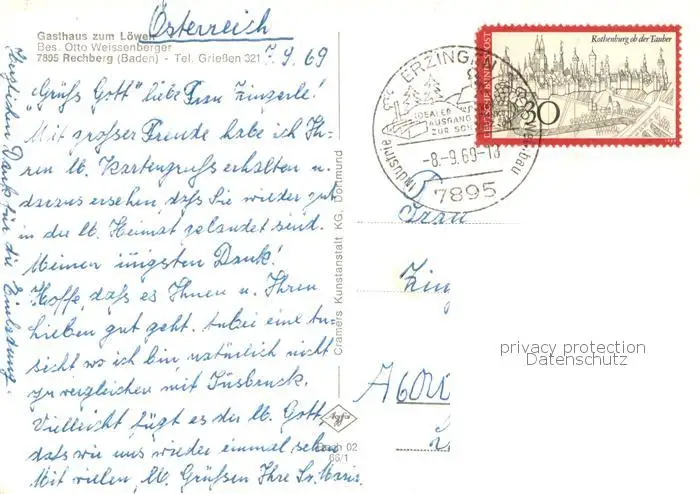 Österreich
Gasthaus zum Löwen
Bes. Otto Weissenberger
7895 Rechberg (Baden) - Tel. Grießen 321
7.9.69
"Grüß Gott" liebe Frau Zinzerle!
Mit großer Freude habe ich Ih-
ren lb. Kartengruß erhalten u.
daraus ersehen, daß Sie wieder gut
in der lb. Heimat gelandet sind.
Meinen innigsten Dank!
Hoffe, daß es Ihnen u. Ihren
Lieben gut geht. Anbei eine An-
sicht wo ich bin, natürlich nicht
zu vergleichen mit Insbruck.
Vielleicht fügt es der lb. Gott,
daß wir uns wieder einmal sehen
Mit vielen, lb. Grüßen Ihre Sr. Maria.
Herzlichen Dank für die Einladung.
Cramers Kunstanstalt KG. Dortmund
Agfa
02
66/1
DEUTSCHE BUNDESPOST
Rothenburg ob der Tauber
30
ERZINGEN
Industrie
Weinbau
IDEALER
AUSGANG
ZUR
-8.-9.69-18
7895
Frau
Zin
A 6020
privacy protection
Datenschutz